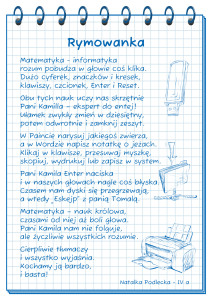 Rymowanka
Matematyka - informatyka
rozum pobudza w głowie coś klika.
Dużo cyferek, znaczków i kresek,
klawiszy, czcionek, Enter i Reset.
Obu tych nauk uczy nas skrzętnie
Pani Kamilla – ekspert do entej!
Ułamek zwykły zmień w dziesiętny,
potem odwrotnie i zamknij zeszyt.
W Paincie narysuj jakiegoś zwierza,
a w Wordzie napisz notatkę o jeżach.
Klikaj w klawisze, przesuwaj myszkę,
skopiuj, wydrukuj lub zapisz w system.
Pani Kamila Enter naciska
i w naszych głowach nagle coś błyska.
Czasem nam dyski się przegrzewają,
a wtedy „Eskejp” z pania Tomalą.
Matematyka – nauk królowa,
czasami od niej aż boli głowa.
Pani Kamila nam nie folguje,
ale życzliwie wszystkich rozumie.
Cierpliwie tłumaczy
i wszystko wyjaśnia.
Kochamy ją bardzo,
i basta!
Natalka Podlecka - IV a